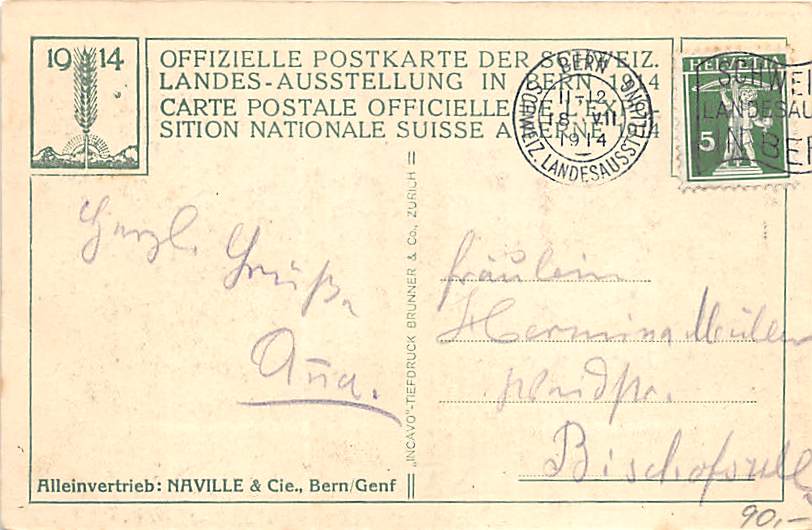 1914
OFFIZIELLE POSTKARTE DER SCHWEIZ.
LANDES-AUSSTELLUNG IN BERN 1914
CARTE POSTALE OFFICIELLE DE L'EXPO-
SITION NATIONALE SUISSE A BERNE 1914
BERN
11-12
18. VII
1914
SCHWEIZ. LANDESAUSSTELLUNG
HELVETIA
5
SCHWEI
LANDESAU
IN BER
Herzl. Grüße
Anna.
Fräulein
Hermina Müller
Weidstr.
Bischofszell
„INCAVO"-TIEFDRUCK BRUNNER & Co., ZÜRICH
Alleinvertrieb: NAVILLE & Cie., Bern/Genf
90,-